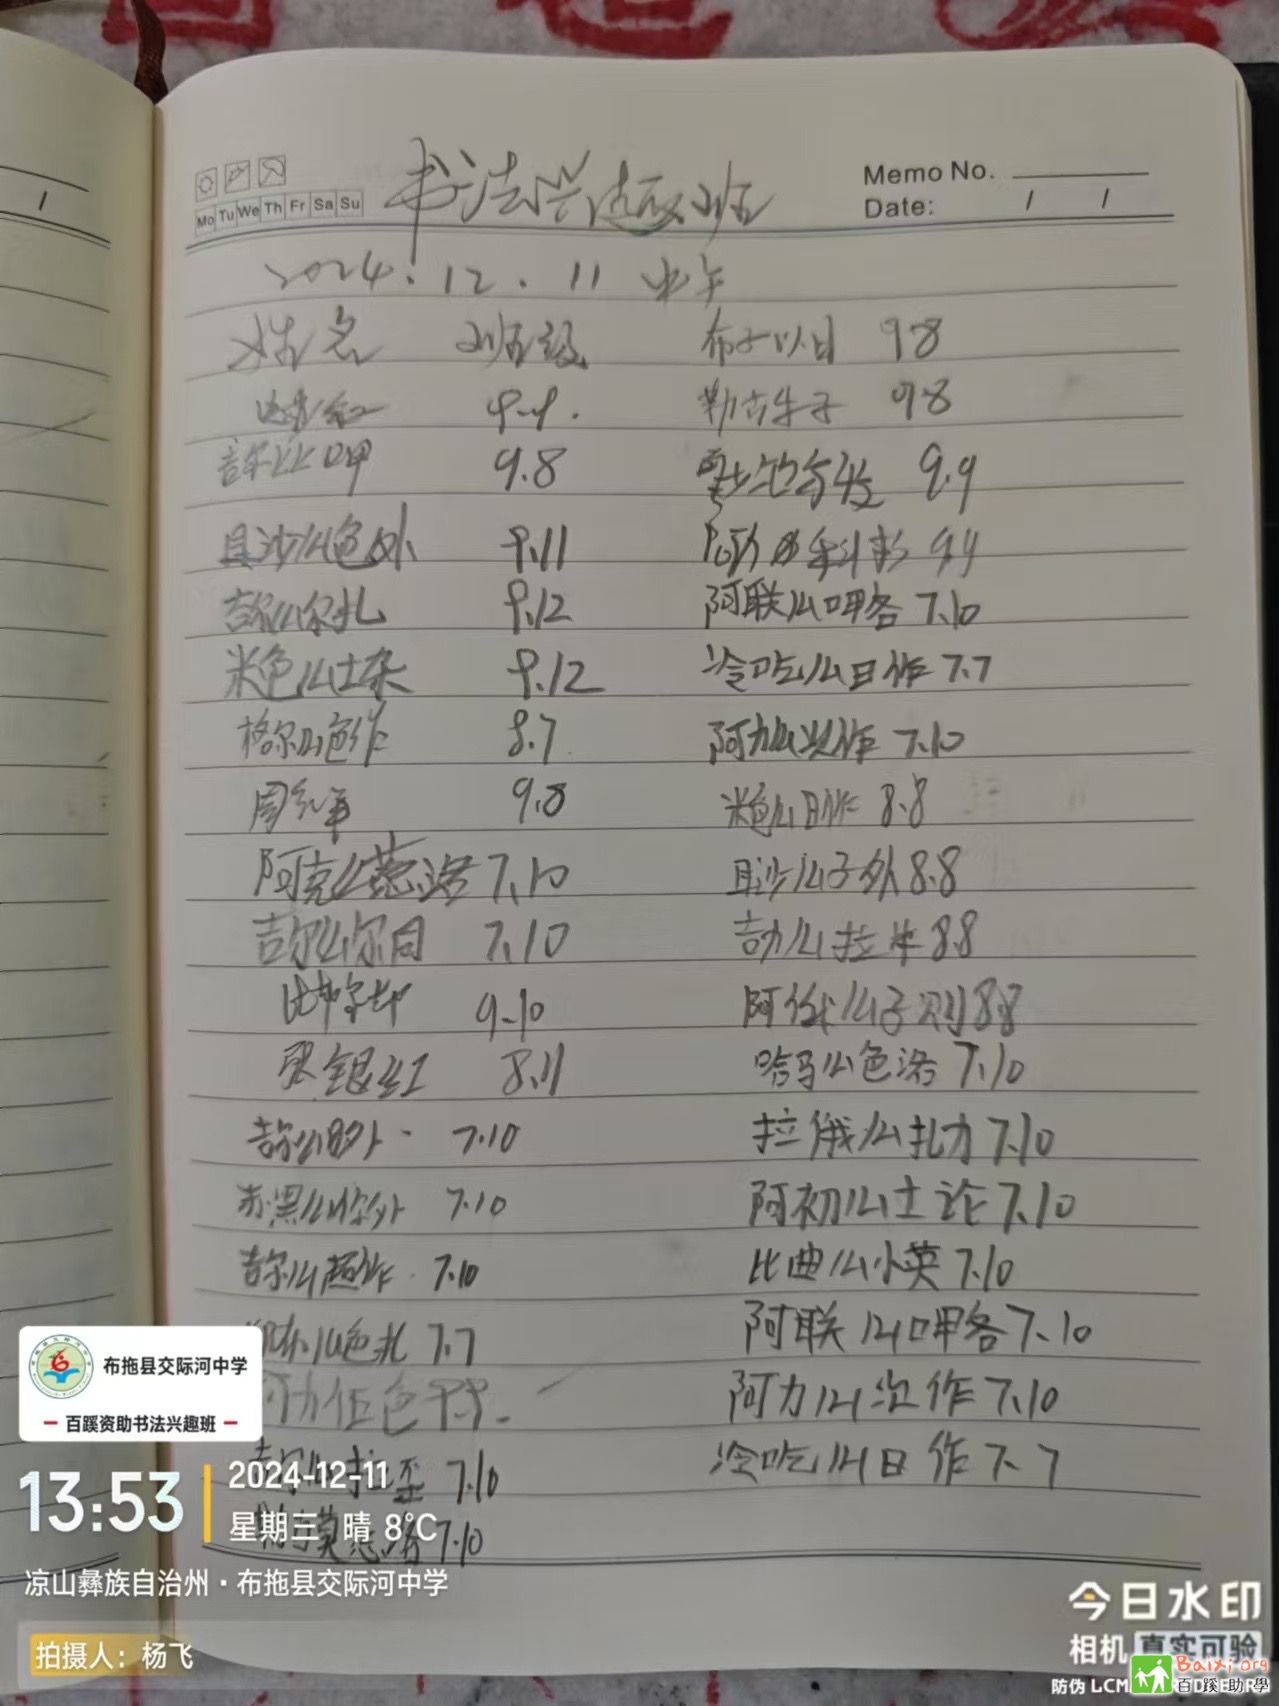 Mo Tu We Th Fr Sa Su
书法兴趣班
Memo No.
Date: / /
2024.12.11 中午
姓名 班级
9.9.
吉尔么呷 9.8
且沙么色外 9.11
吉尔么尔扎 9.12
米色么士杂 9.12
格尔么色作 8.7
周红军 9.8
阿克么慈洛 7.10
吉尔么尔同 7.10
9-10
张银红 8.11
吉尔么日外 7.10
苏黑么你外 7.10
吉尔么超作 7.10
么色扎 7.7
阿力伍色 9.9.
7.10
7.10
布子以日 9.8
勒古牛子 9.8
9.9
9.9
阿联么呷各 7.10
冷吃么日作 7.7
阿力么次作 7.10
米色么日作 8.8
且沙么子外 8.8
吉力么拉牛 8.8
阿俄么子则 8.8
哈马么色洛 7.10
拉俄么扎力 7.10
阿初么士论 7.10
比曲么小英 7.10
阿联么呷各 7.10
阿力么次作 7.10
冷吃么日作 7.7
布拖县交际河中学
百蹊资助书法兴趣班
13:53
2024-12-11
星期三 晴 8°C
凉山彝族自治州·布拖县交际河中学
拍摄人：杨飞
今日水印
相机 真实可验
防伪
Baixi.org
百蹊助學